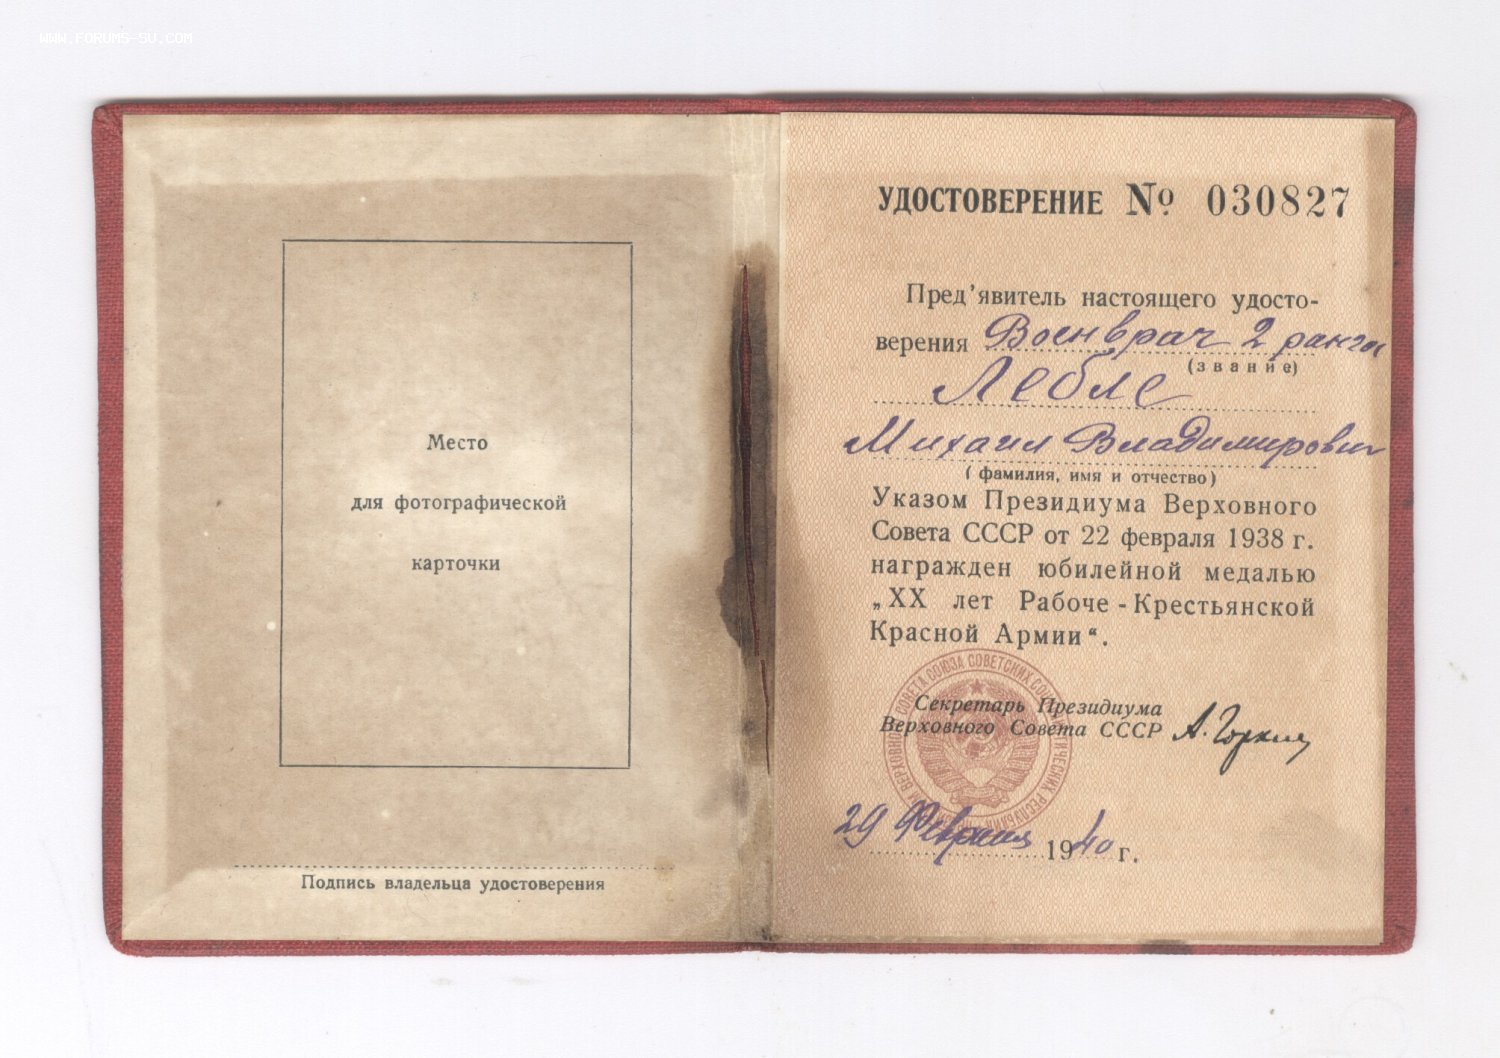 WWW.FORUMS-SU.COM
Место
для фотографической
карточки
Подпись владельца удостоверения
УДОСТОВЕРЕНИЕ № 030827
Пред'явитель настоящего удосто-
верения Военврач 2 ранга
(звание)
Лебле
Михаил Владимирович
(фамилия, имя и отчество)
Указом Президиума Верховного
Совета СССР от 22 февраля 1938 г.
награжден юбилейной медалью
„ХХ лет Рабоче-Крестьянской
Красной Армии“.
Секретарь Президиума
Верховного Совета СССР А. Горкин
29 Февраля 1940 г.